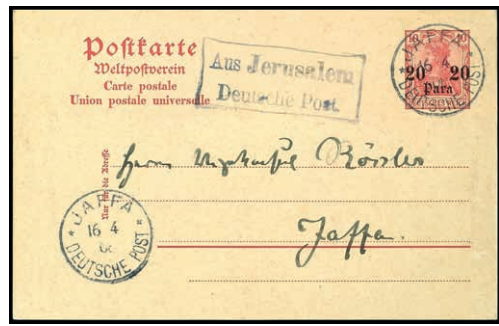 Postkarte
Weltpostverein
Carte postale
Union postale universelle
Aus Jerusalem
Deutsche Post.
10 10
20 20
Para
JAFFA
16 4
DEUTSCHE POST
Nur für die Adresse
Herrn Vizekonsul Rössler
Jaffa.
JAFFA
16 4
DEUTSCHE POST